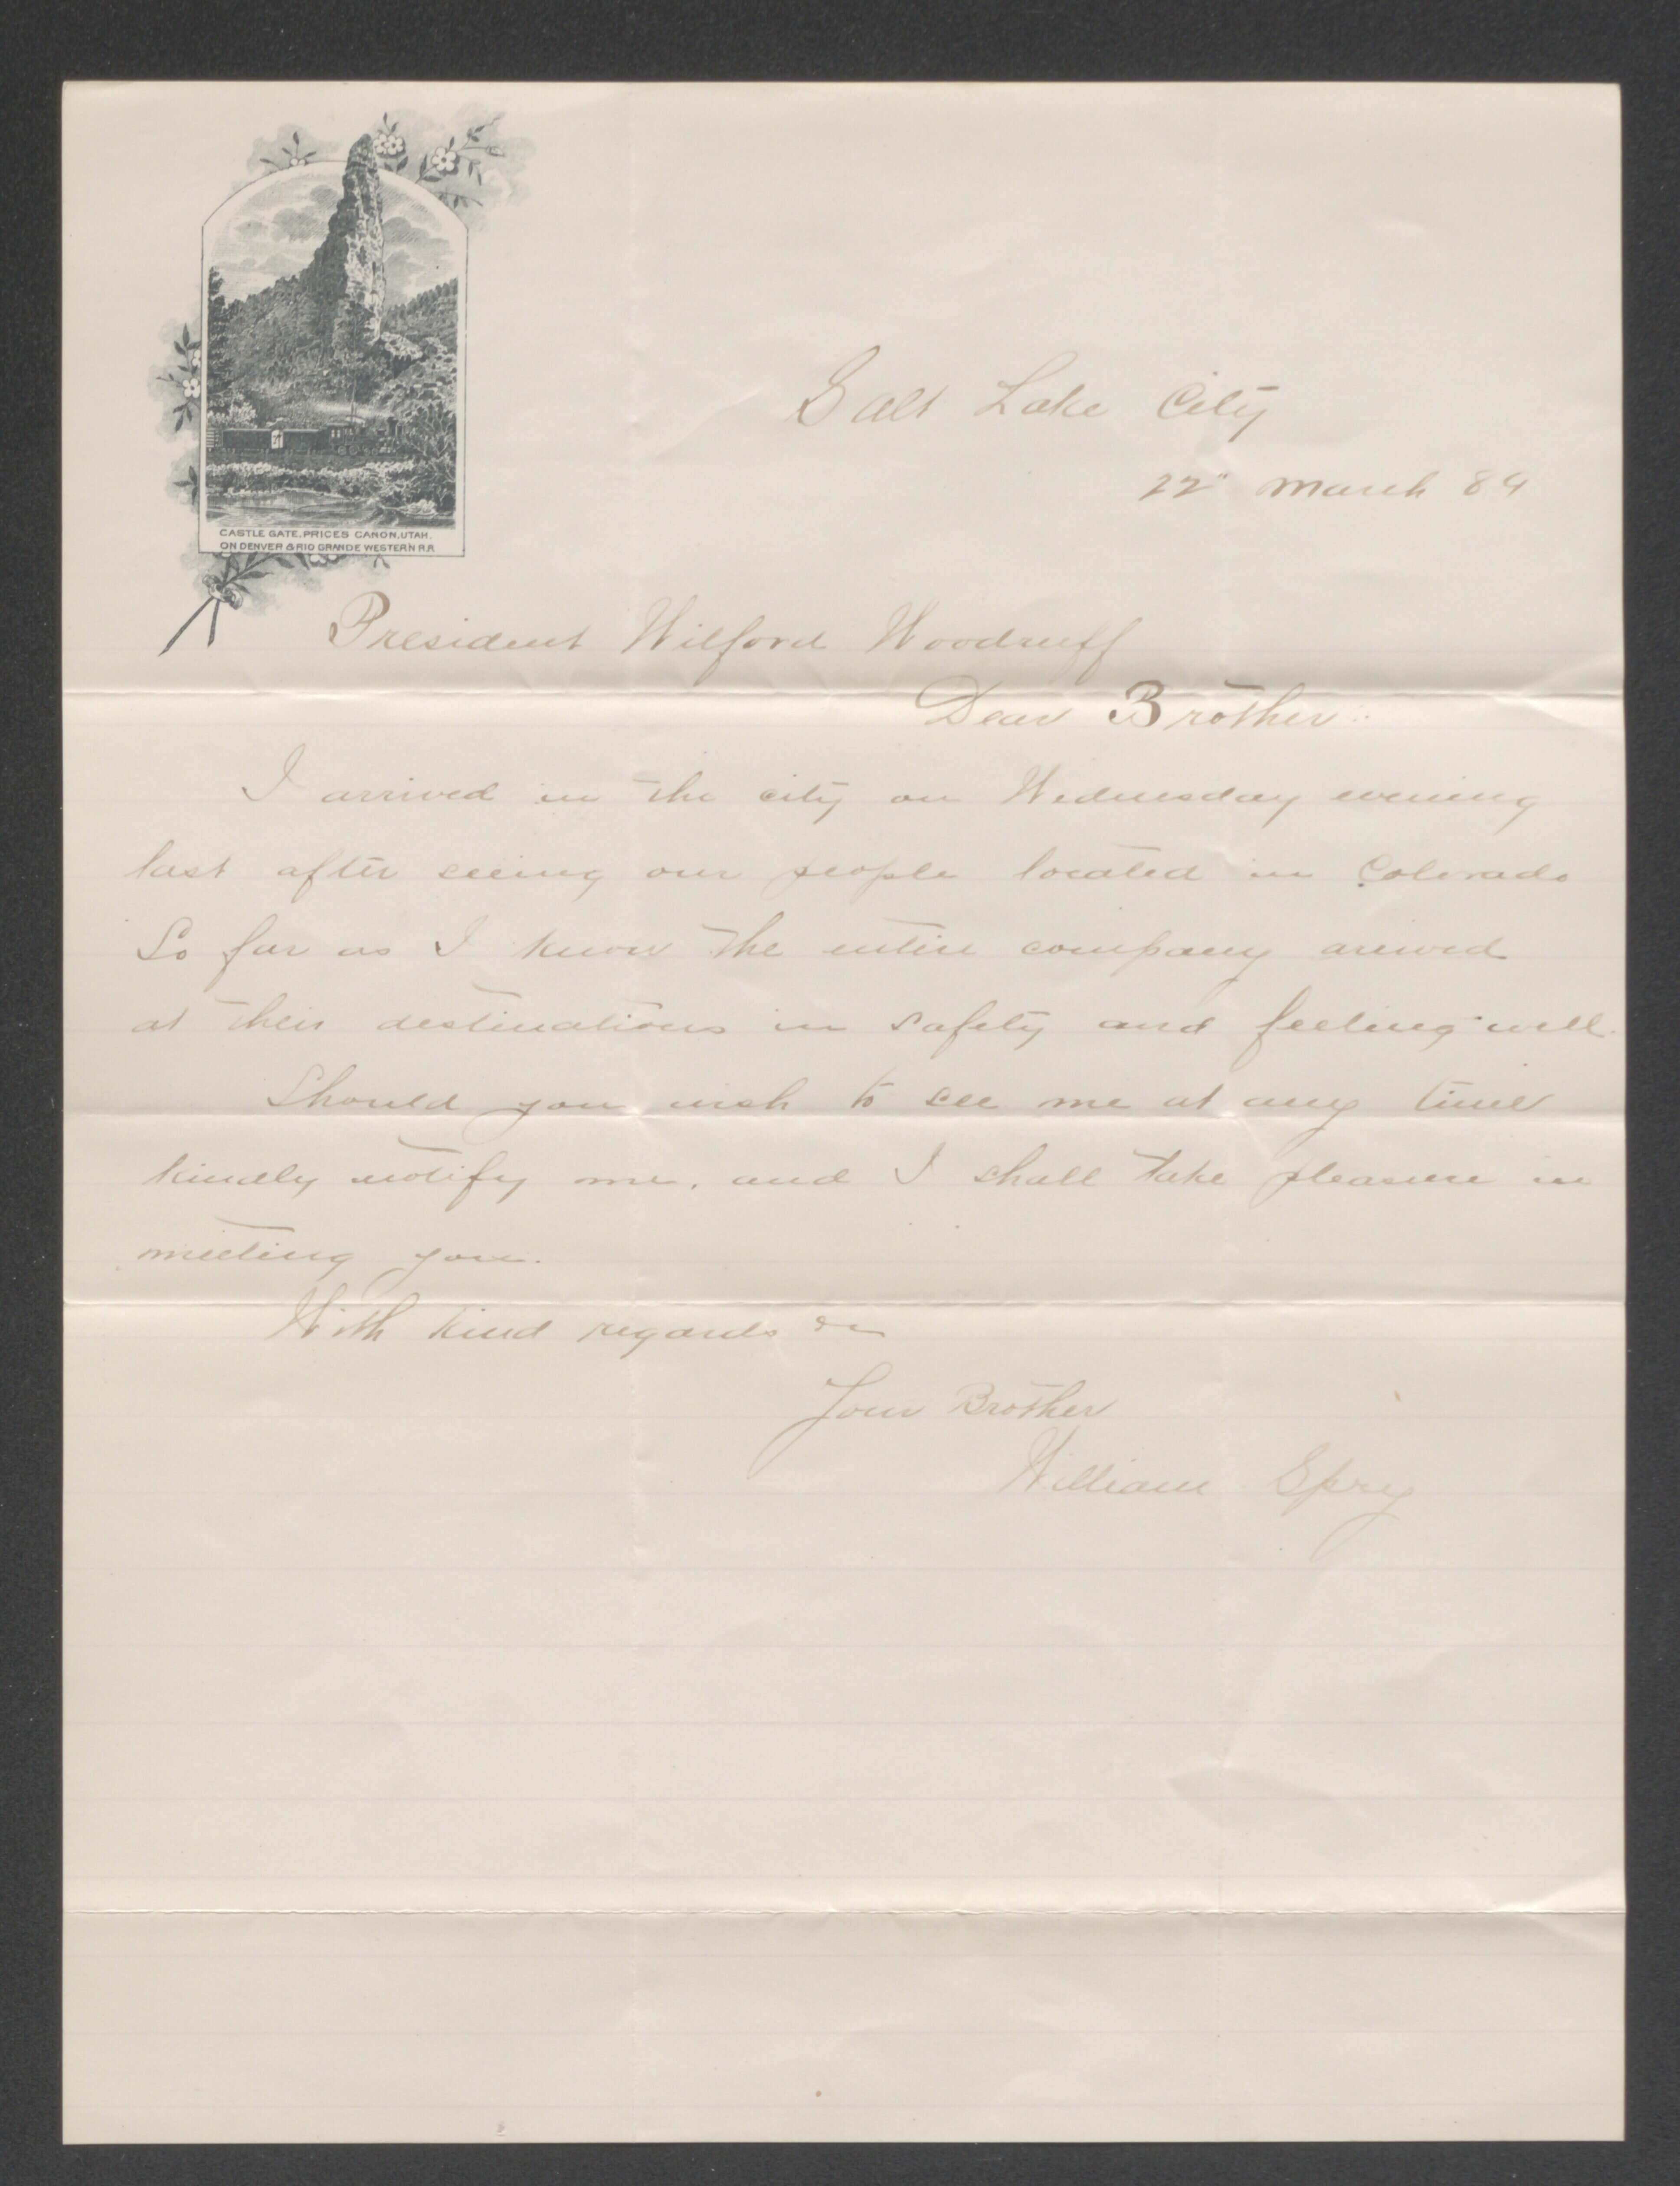 CASTLE GATE, PRICES CANON, UTAH.
ON DENVER & RIO GRANDE WESTERN R.R.
Salt Lake City
22" March 89
President Wilford Woodruff
Dear Brother:
I arrived in the city on Wednesday evening
last after seeing our people located in Colorado
So far as I know the entire company arrived
at their destinations in safety and feeling well.
Should you wish to see me at any time
kindly notify me, and I shall take pleasure in
meeting you.
With kind regards
Your Brother
William Spry